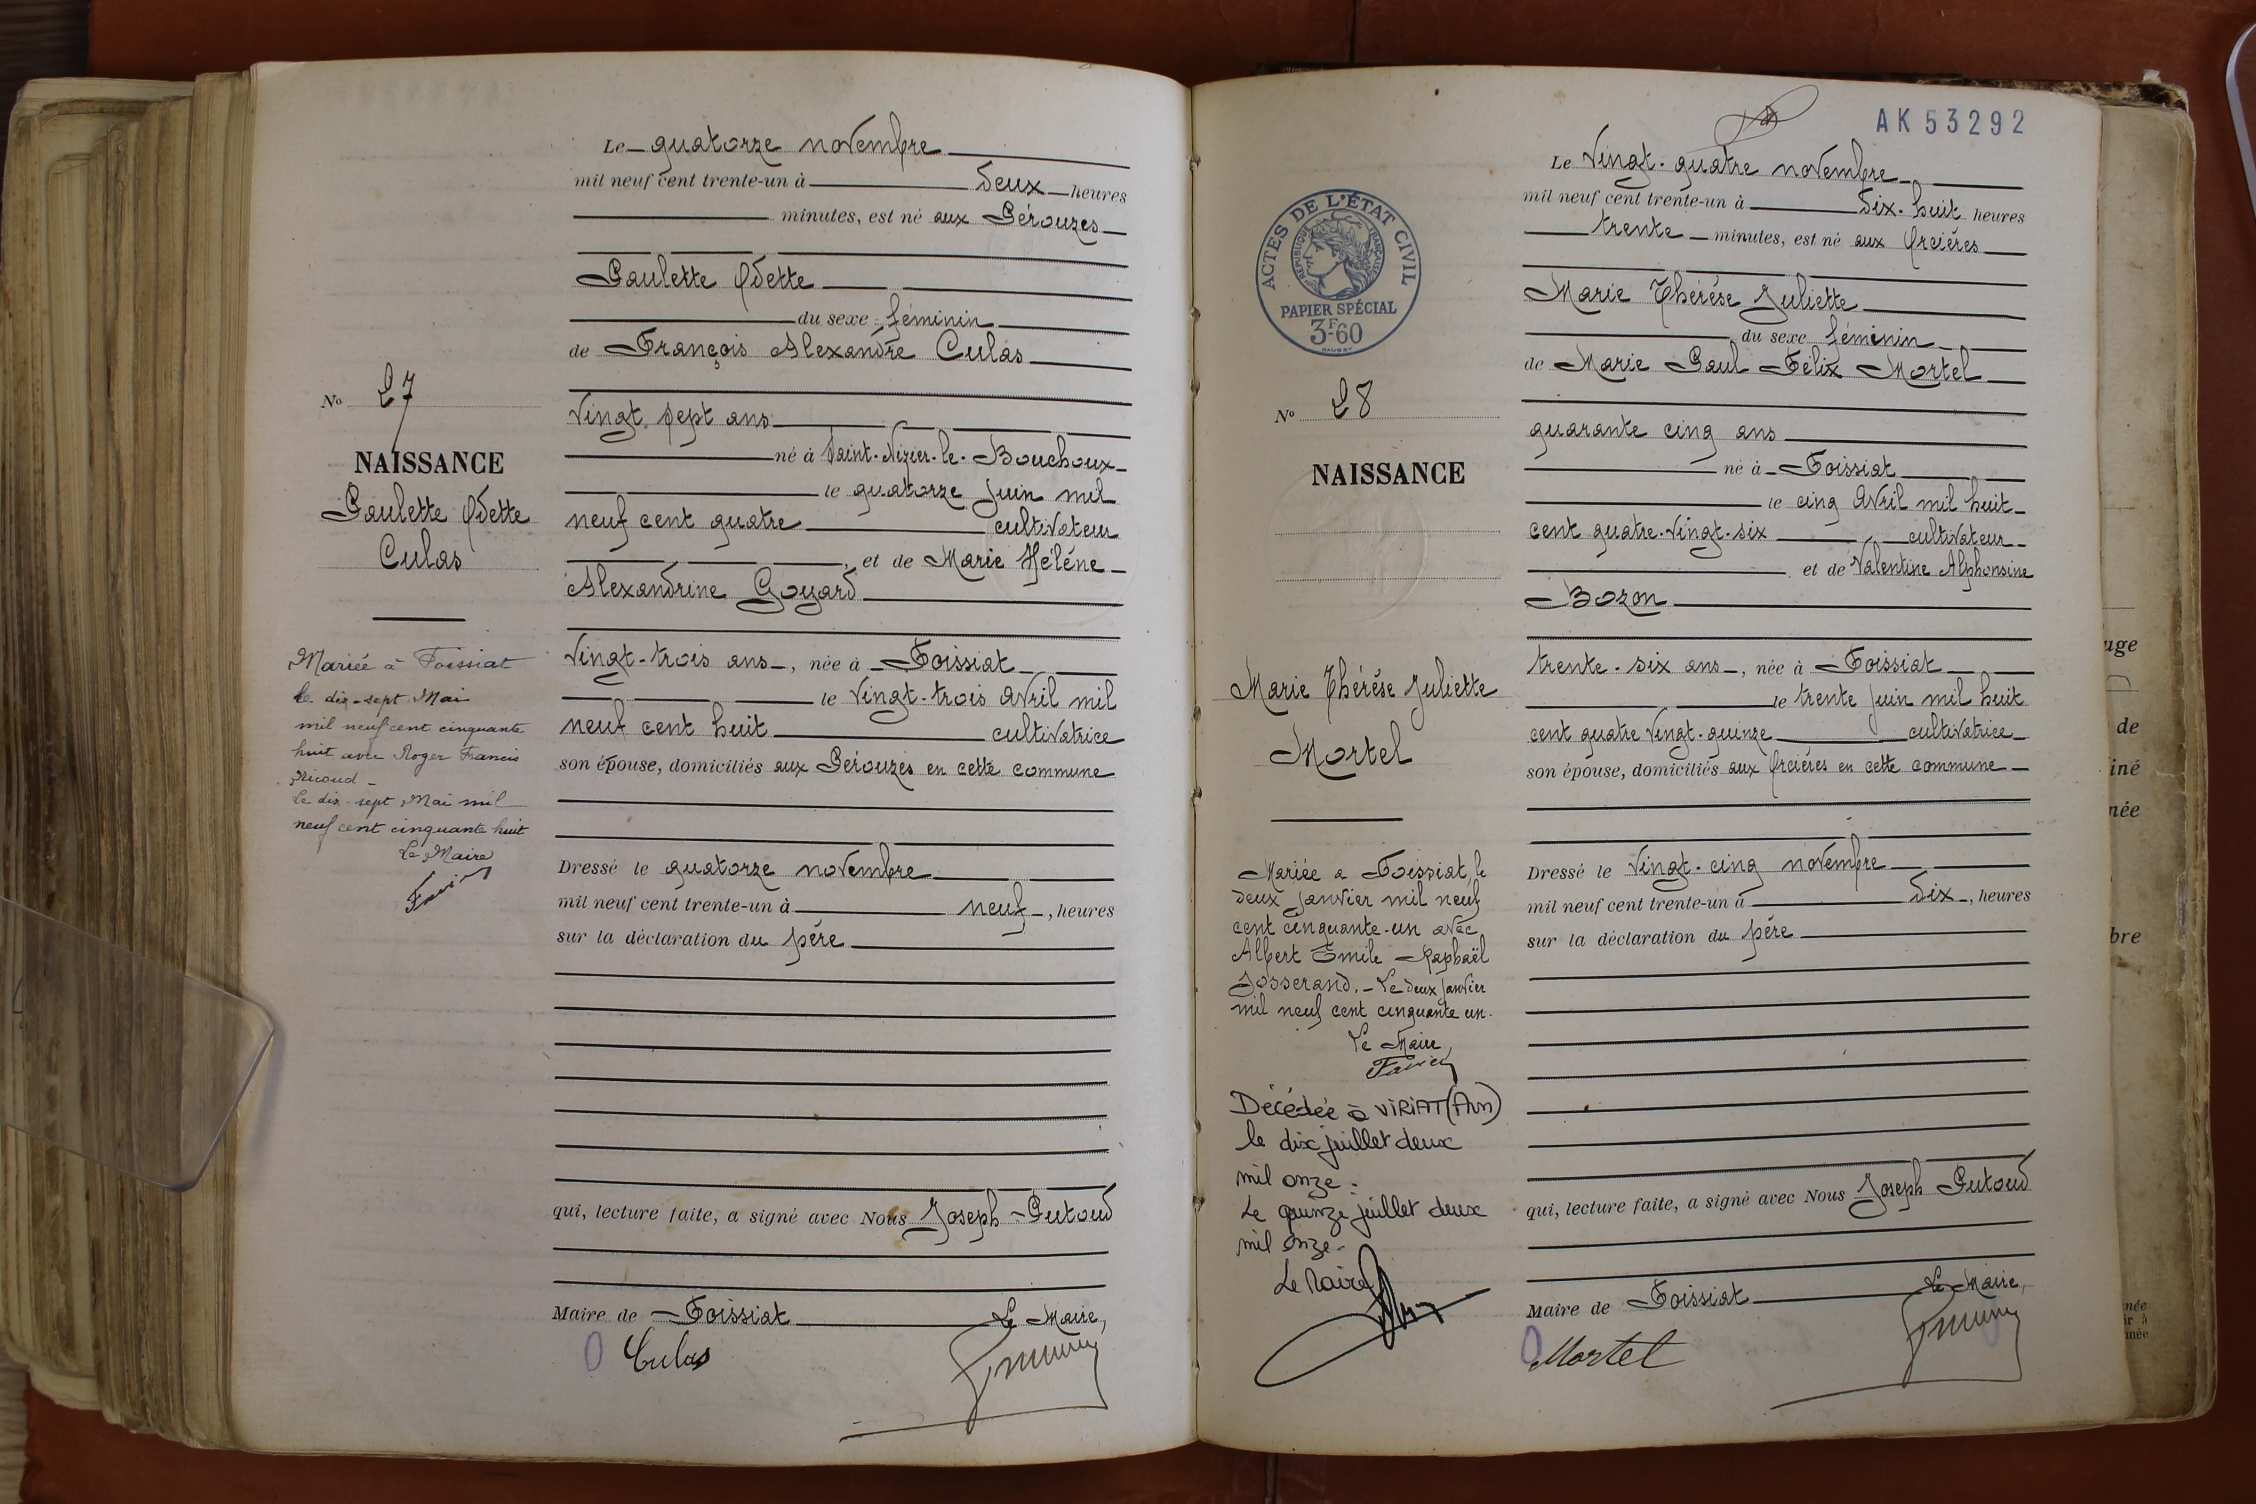 Le quatorze novembre
mil neuf cent trente-un à deux heures
minutes, est né aux Pérouzes
Paulette Odette
du sexe féminin
de François Alexandre Culas
vingt sept ans
né à Saint-Nizier-le-Bouchoux
le quatorze juin mil
neuf cent quatre cultivateur
et de Marie Hélène
Alexandrine Goyard
vingt-trois ans, née à Foissiat
le vingt-trois avril mil
neuf cent huit cultivatrice
son épouse, domiciliés aux Pérouzes en cette commune
Dressé le quatorze novembre
mil neuf cent trente-un à neuf, heures
sur la déclaration du père
qui, lecture faite, a signé avec Nous Joseph Putoud
Maire de Foissiat Le Maire,
Culas
No 27
NAISSANCE
Paulette Odette
Culas
Mariée à Foissiat
le dix-sept Mai
mil neuf cent cinquante
huit avec Roger Francis
Nicoud
Le dix-sept Mai mil
neuf cent cinquante huit
Le Maire
AK 53292
ACTES DE L'ÉTAT CIVIL
RÉPUBLIQUE FRANÇAISE
PAPIER SPÉCIAL
3F.60
No 28
NAISSANCE
Marie Thérèse Juliette
Mortel
Mariée a Foissiat, le
deux janvier mil neuf
cent cinquante-un avec
Albert Emile Raphaël
Josserand. - Le deux janvier
mil neuf cent cinquante un.
Le Maire,
Décédée à VIRIAT (Ain)
le dix juillet deux
mil onze.
Le quinze juillet deux
mil onze.
Le Maire
Le vingt-quatre novembre
mil neuf cent trente-un à dix-huit heures
trente minutes, est né aux Orcières
Marie Thérèse Juliette
du sexe féminin
de Marie Paul Félix Mortel
quarante cinq ans
né à Foissiat
le cinq avril mil huit
cent quatre-vingt-six cultivateur
et de Valentine Alphonsine
Bozon
trente-six ans, née à Foissiat
le trente juin mil huit
cent quatre vingt-quinze cultivatrice
son épouse, domiciliés aux Orcières en cette commune
Dressé le vingt-cinq novembre
mil neuf cent trente-un à dix, heures
sur la déclaration du père
qui, lecture faite, a signé avec Nous Joseph Putoud
Maire de Foissiat Le Maire,
Mortel